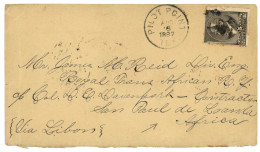 PILOT POINT
TEX.
1887
Mr. James M. Reid Div. Eng.
Royal Trans African R. Y.
c/o Col. C. C. Davenport - Contractor
San Paul di Loanda
Africa
(Via Lisbon)